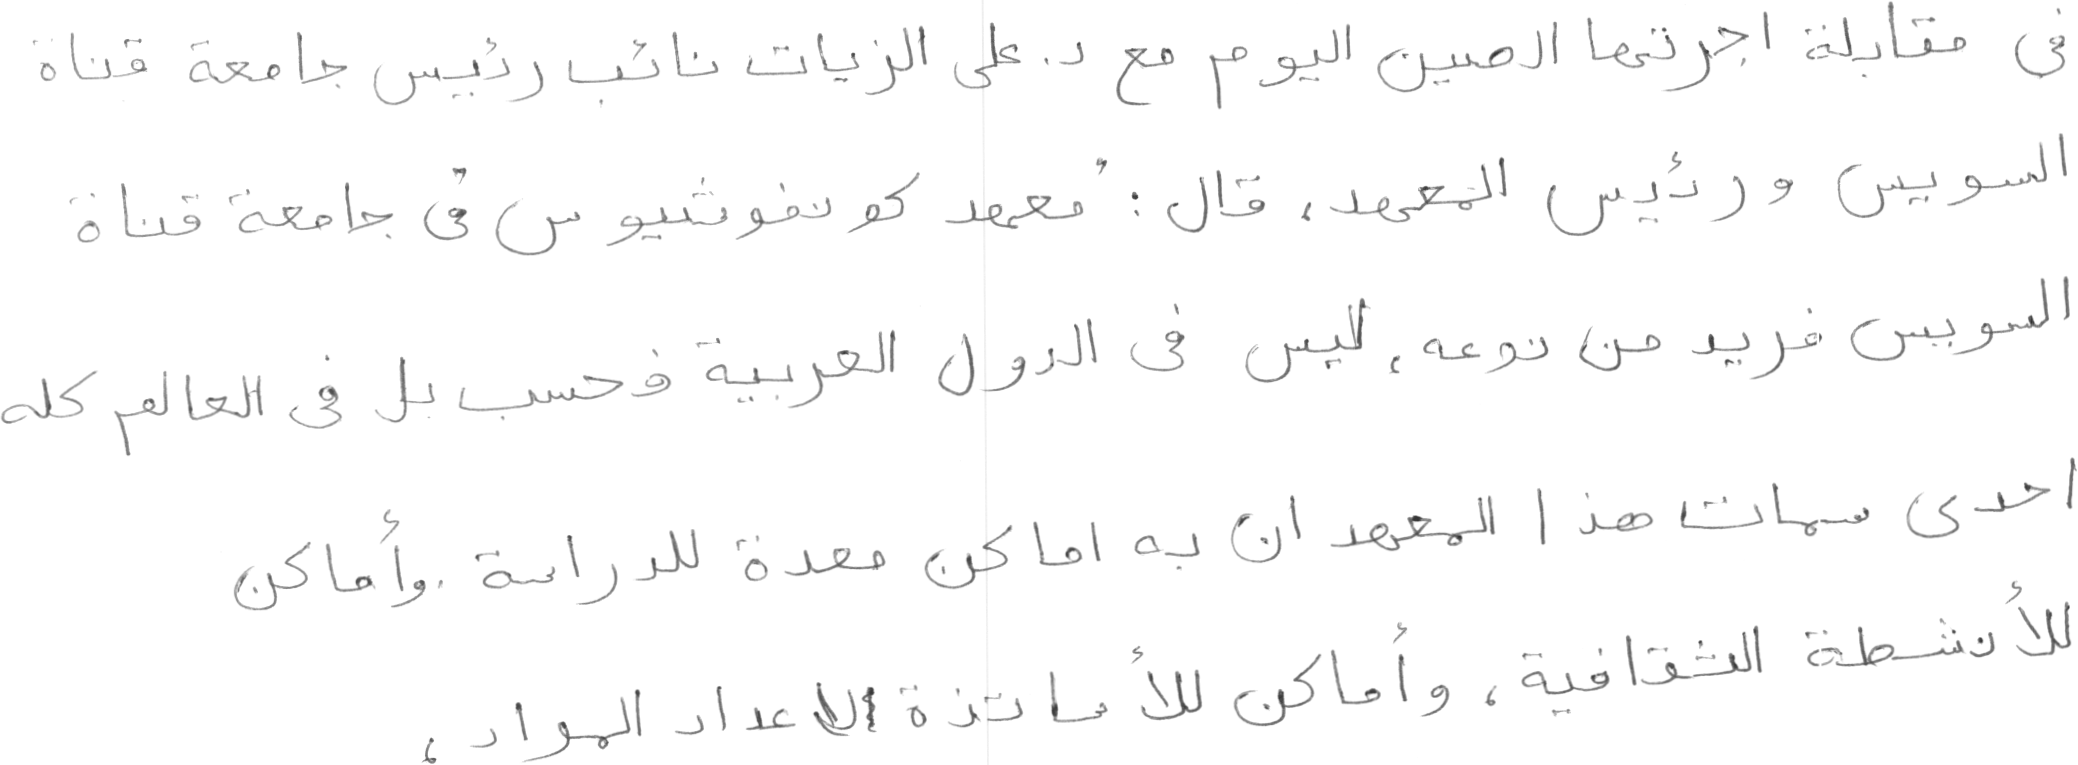 فى مقابلة اجرتها الصين اليوم مع د. على الزيات نائب رئيس جامعة قناة
السويس ورئيس المعهد، قال: "معهد كونفوشيوس فى جامعة قناة
السويس فريد من نوعه، ليس فى الدول العربية فحسب بل فى العالم كله
احدى سمات هذا المعهد ان به اماكن معدة للدراسة، وأماكن
للأنشطة الثقافية، وأماكن للأساتذة لاعداد المواد،